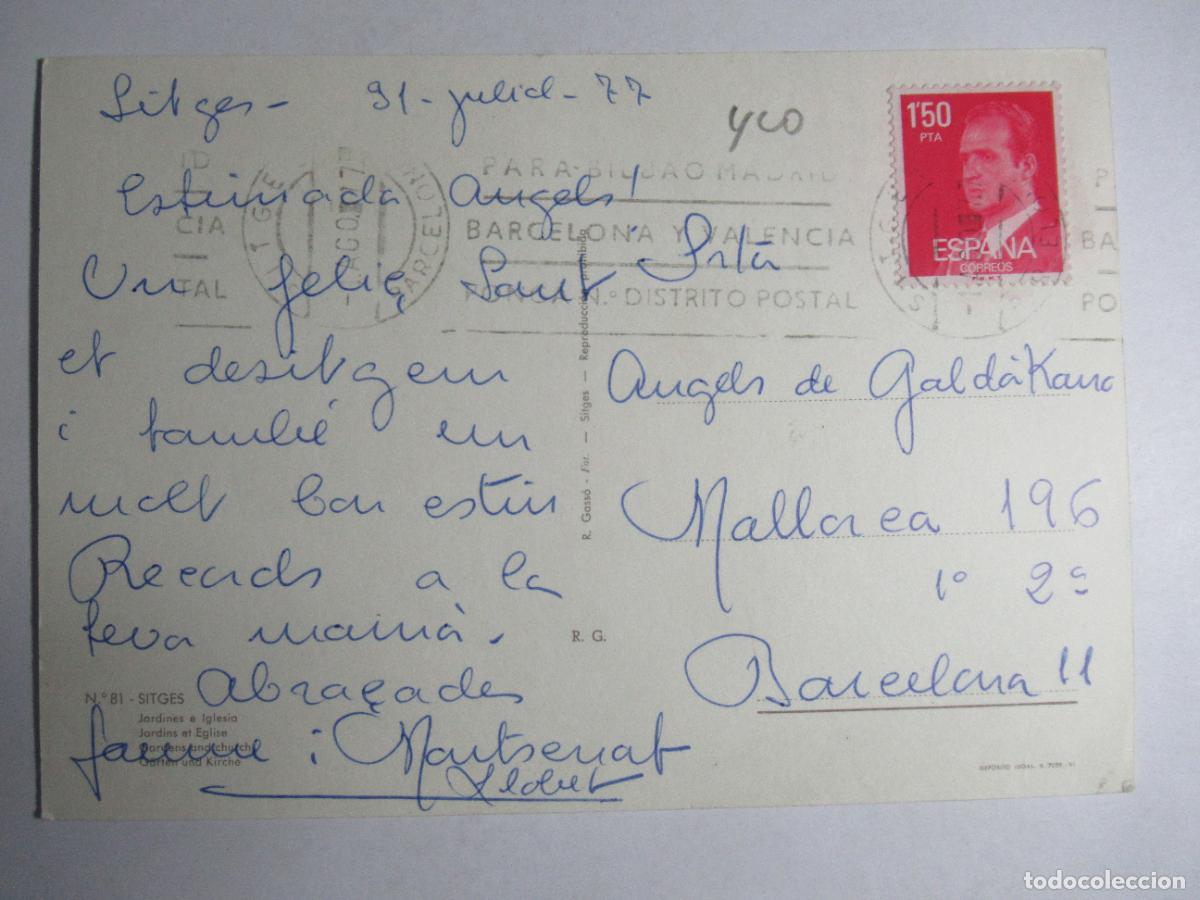 Sitges - 31 - juliol - 77
yco
1'50
PTA
ESPAÑA
CORREOS
PARA BILBAO MADRID
BARCELONA Y VALENCIA
PONGA N.º DISTRITO POSTAL
SITGES
AGO
BARCELONA
ID
CIA
TAL
P
BA
PO
Estimada Angels!
Un feliç Sant
et desitgem
i també un
molt bon estiu
Records a la
teva mamà.
Abraçades
Jaume i Montserrat
Llobet
Angels de Galdàkano
Mallorca 196
1º 2ª
Barcelona 11
R. Gassó - Fot. — Sitges — Reproducción prohibida
R. G.
N.º 81 - SITGES
Jardines e Iglesia
Jardins et Eglise
Gardens and church
Garten und Kirche
todocoleccion